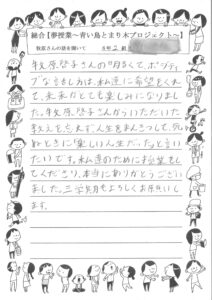 総合【夢授業～青い鳥とまり木プロジェクト～】
牧原さんの話を聞いて
5年2組
牧原啓子さんの明るくて、ポジティ
ブなはなしかたは、私達に希望をくれ
て、未来がとても楽しみになりまし
た。牧原啓子さんからいただいた
教えを忘れず、人生をまんきつして、死
ぬときに「楽しい人生だった」と言い
たいです。私達のために授業をし
てくださり、本当にありがとうござい
ました。三学期もよろしくお願いし
ます。